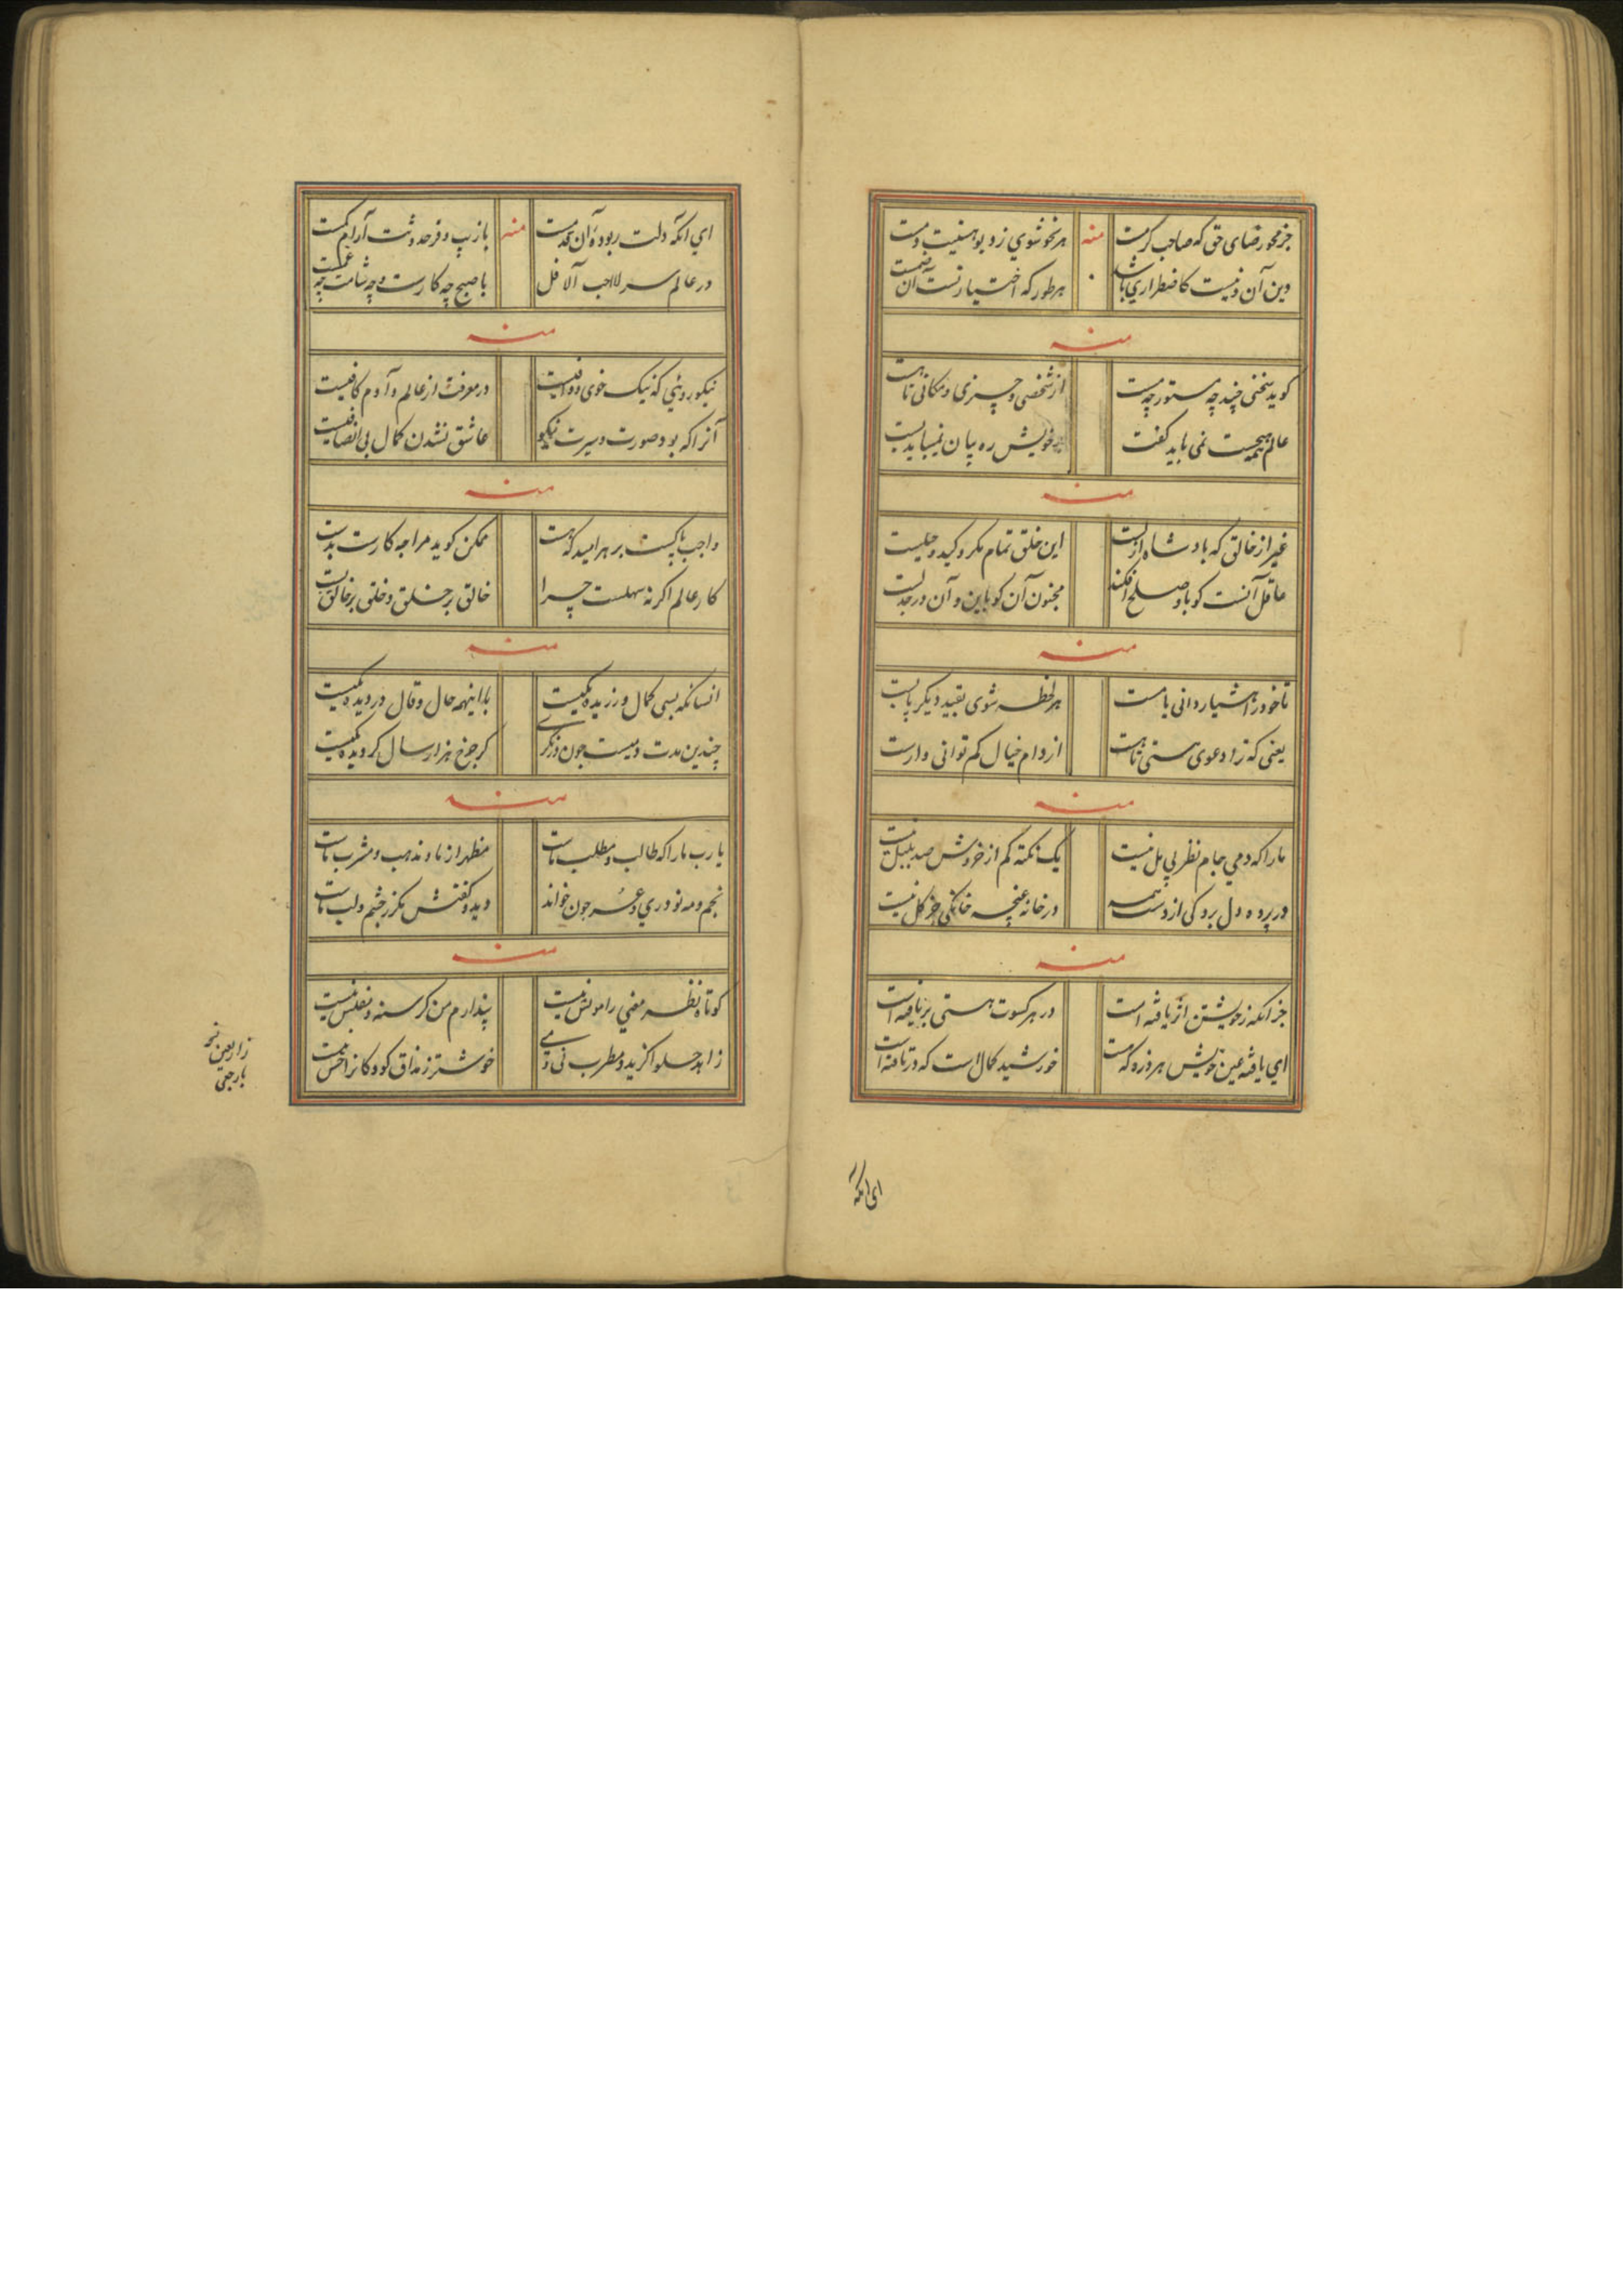 جز محو رضای حق که صاحب کرمست
هر نحو شوی زد و بو هستیت دمست
دین آن تو نیست کاضطراری باشد
هر طور که اختیار تست آن
منه
کوید سخنی چند چه مستور چه مست
از شخصی و چیزی و مکانی تا هست
عالم همه چیست نمی باید کفت
خویش ره بیان نمیباید بست
منه
غیر از خالق که بادشاه ازلست
این خلق تمام مکر و کید و حیلست
عاقل آنست کو باو صلح افکند
مجنون آن کو باین و آن در جدلست
منه
تا خود را هشیار دانی یا مست
هر لحظه شوی بقید دیکر پابست
یعنی که ترا دعوی هستی تا هست
از دام خیال کم توانی وارست
منه
ما را که دمی جام نظر بی مل نیست
یک نکته کم از خروش صد بلبل نیست
در پرده دل برد کی از دست همه
در خانه غنچه خانکی جز کل نیست
منه
جز آنکه ز خویشتن اثر یافته است
در هر کسوت هستی بر یافته است
ای یافته عین خویش هر ذره که هست
خورشید کمال است که در تافته است
ای آنکه
ای آنکه دلت ربوده آن صمدست
منه
در عالم سر لا احب الآفل
با صبح چه کارست و چه شامت
منه
نیکو رویی که نیک خوی و وافیست
در معرفت از عالم و آدم کافیست
آنرا که بود صورت و سیرت نیکو
عاشق نشدن کمال بی انصافیست
منه
واجب پاکیست بر هر امید که هست
ممکن کوید مرا چه کارست بدست
کار عالم اکر نه سهلست چرا
خالق بر خلق و خلق بر خالق بست
منه
انسان که بسی کمال ورزیده یکیست
با اینهمه حال و قال در دیده یکیست
چندین مدت دمیست چون درنکری
کر چرخ هزار سال کردیده یکیست
منه
یا رب ما را که طالب و مطلب ماست
مظهر از ما و مذهب و مشرب ماست
نجم و مه نو دری و جون خواند
دید و کفتش مکر ز چشم و لب ماست
منه
کوتاه نظر معنی را مونس نیست
پندارم من کرسنه و مفلس نیست
زاهد حلوا کزید و مطرب نی و می
خوشتر ز مذاق کودکان را حس نیست